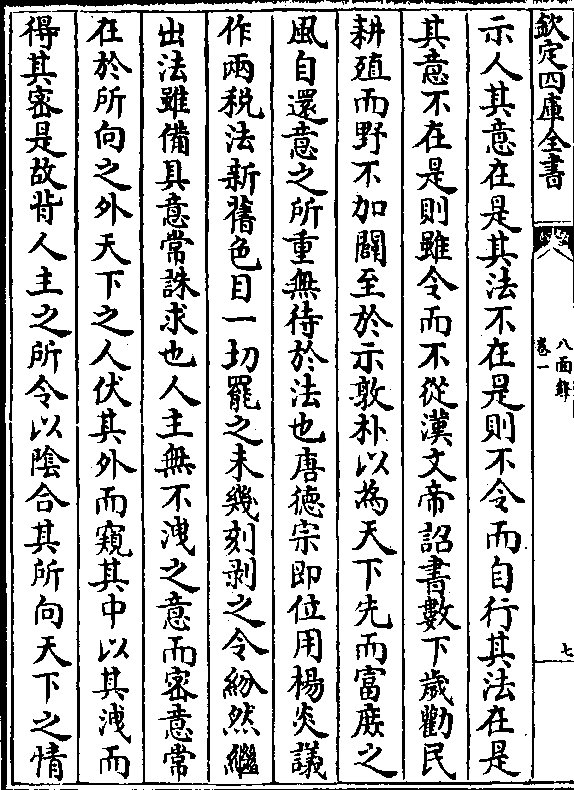 欽定四庫全書
八面鋒
卷一
七
示人其意在是其法不在是則不令而自行其法在是
其意不在是則雖令而不從漢文帝詔書數下歲勸民
耕殖而野不加闢至於示敦朴以為天下先而富庶之
風自還意之所重無待於法也唐德宗即位用楊炎議
作兩稅法新舊色目一切罷之未幾刻剥之令紛然繼
出法雖備具意常誅求也人主無不洩之意而密意常
在於所向之外天下之人伏其外而窺其中以其洩而
得其密是故背人主之所令以陰合其所向天下之情